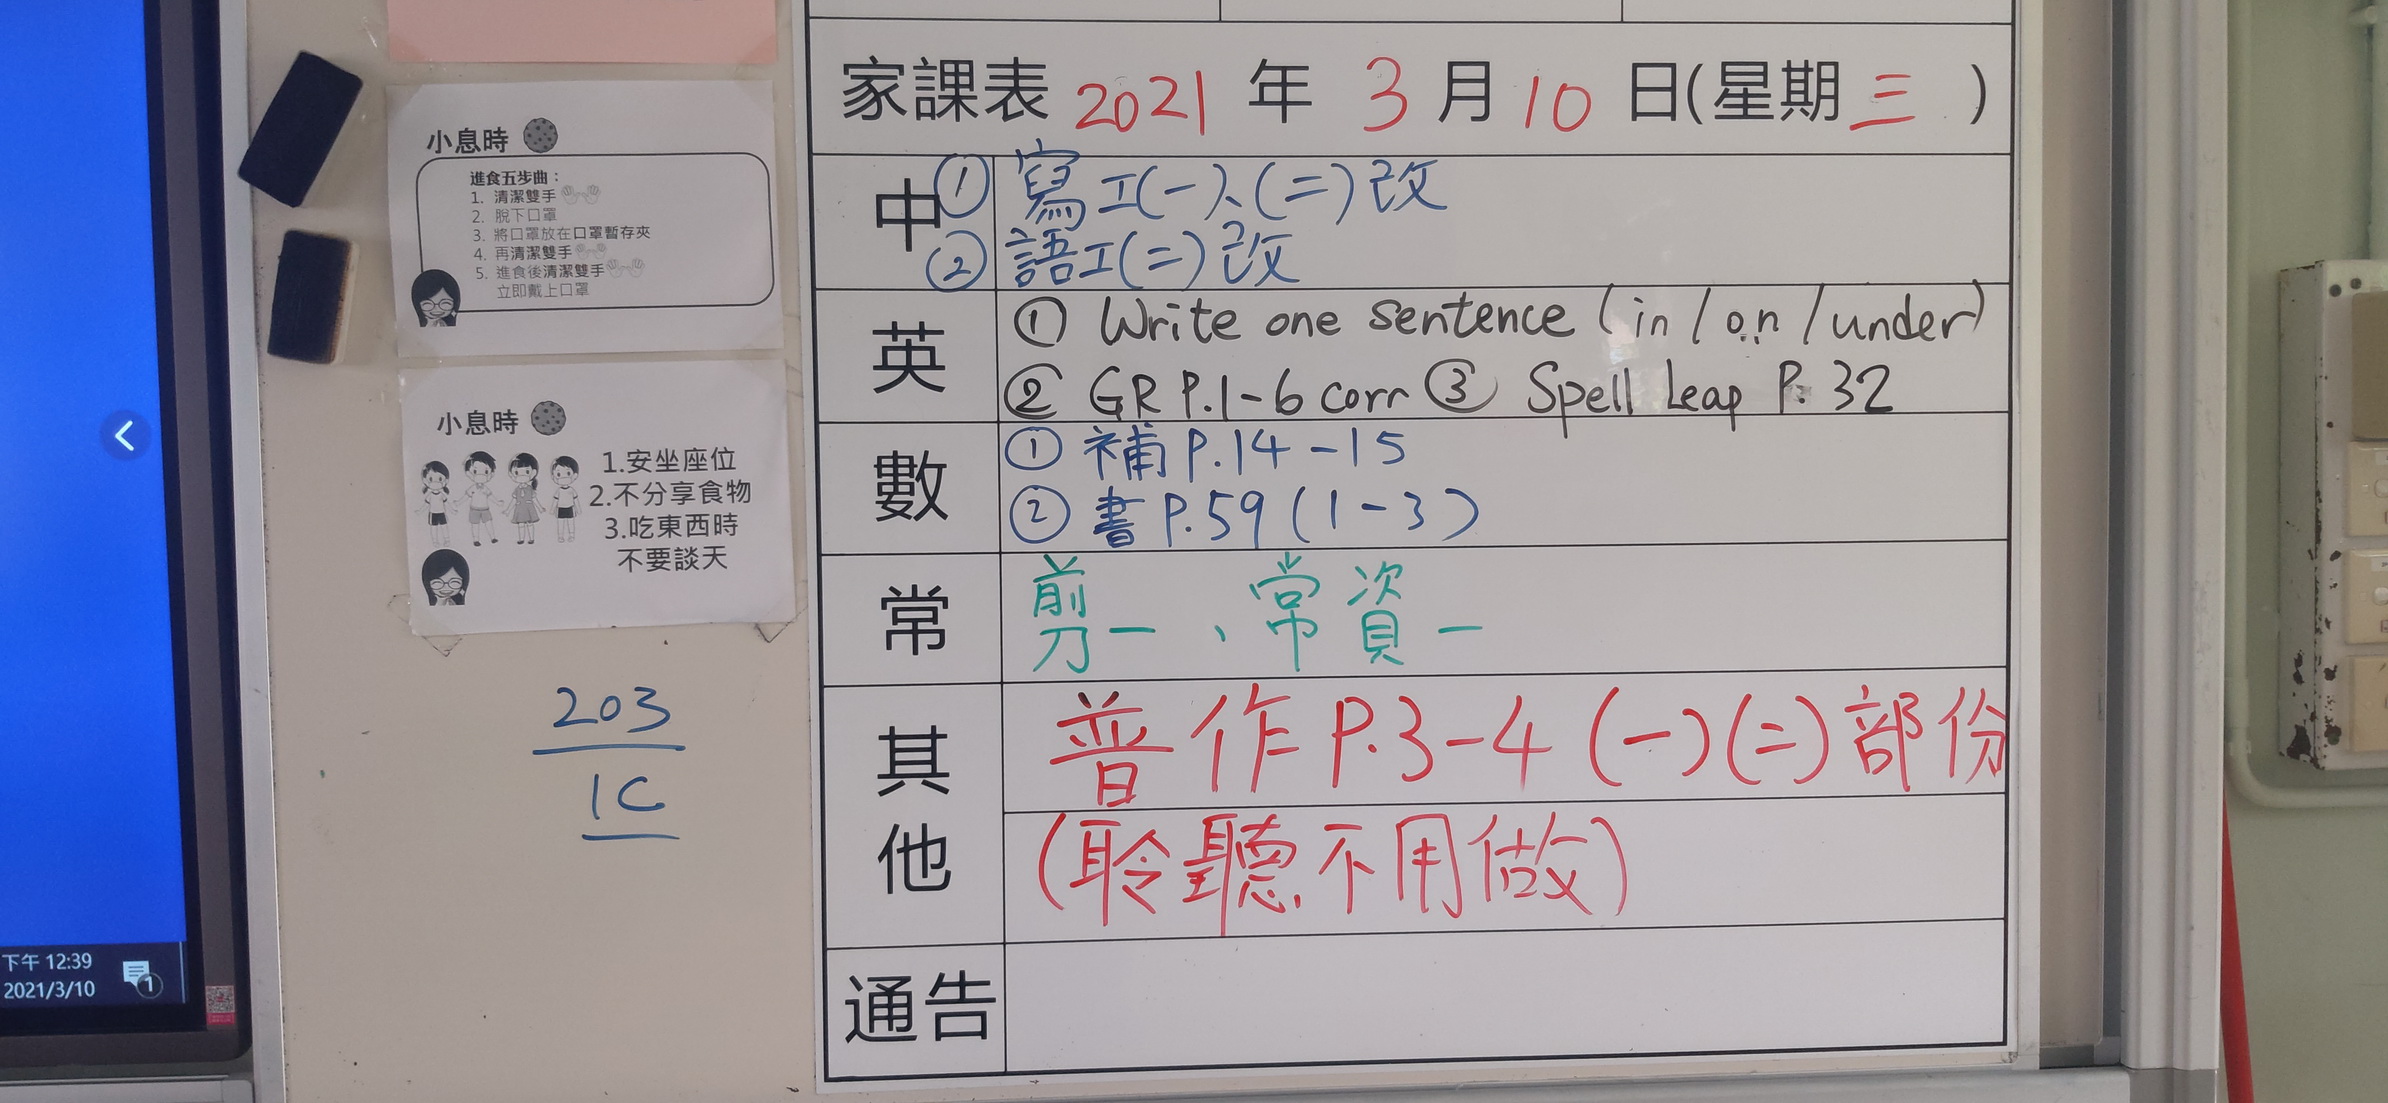 小息時
進食五步曲：
1. 清潔雙手
2. 脫下口罩
3. 將口罩放在口罩暫存夾
4. 再清潔雙手
5. 進食後清潔雙手
立即戴上口罩
小息時
1.安坐座位
2.不分享食物
3.吃東西時
不要談天
203
1C
下午 12:39
2021/3/10
1
家課表 2021 年 3 月 10 日(星期三)
中
① 寫工(一)、(二)改
② 語工(二)改
英
① Write one sentence (in / on / under)
② GR P.1-6 corr ③ Spell Leap P. 32
數
① 補 P.14-15
② 書 P.59 (1-3)
常
剪一、常資一
其他
普作 P.3-4 (一)(二)部份
(聆聽不用做)
通告